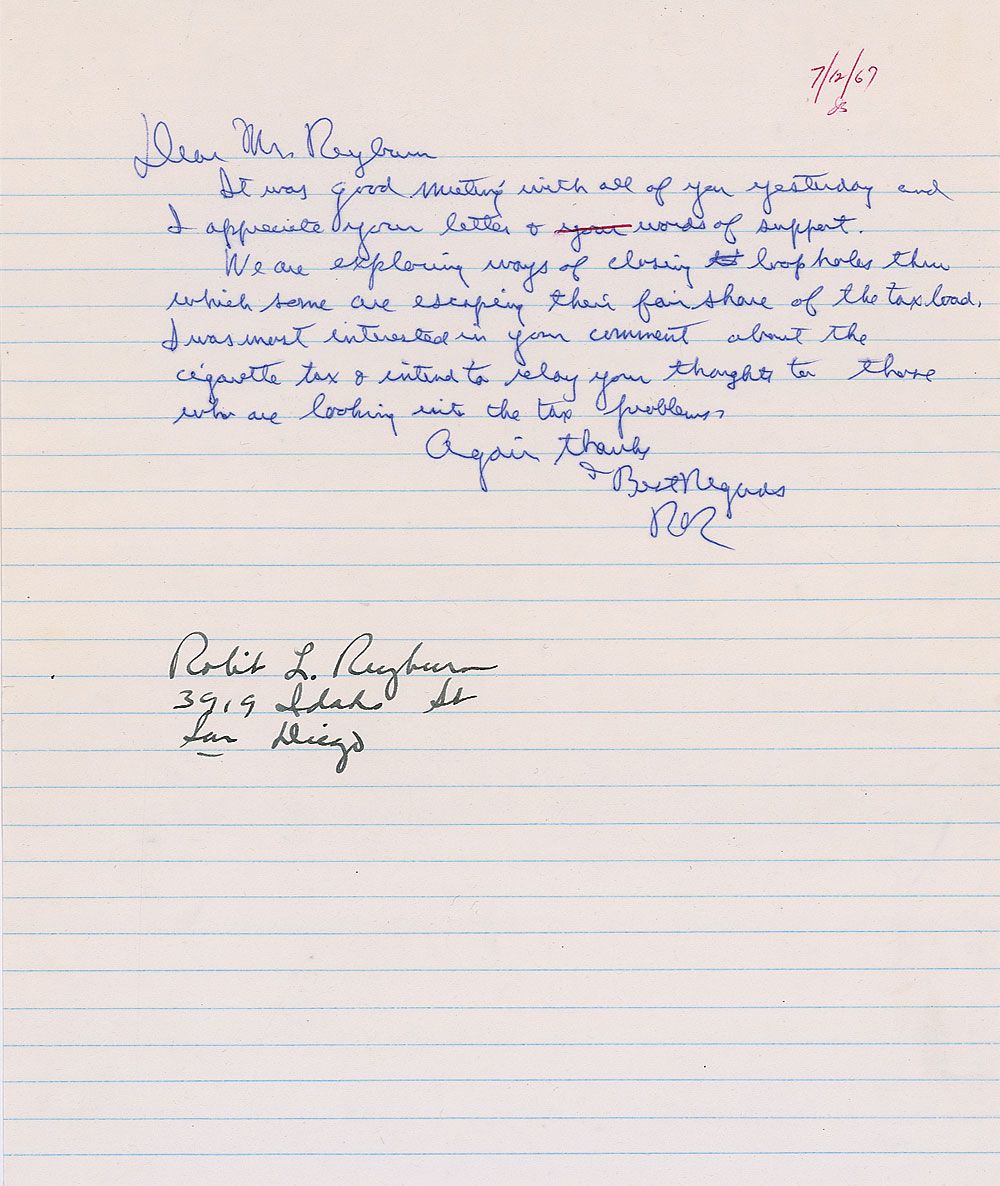 7/12/67
Dear Mr. Reyburn
It was good meeting with all of you yesterday and
I appreciate your letter & your words of support.
We are exploring ways of closing loop holes thru
which some are escaping their fair share of the tax load.
I was most interested in your comment about the
cigarette tax & intend to relay your thoughts to those
who are looking into the tax problems.
Again thanks
& Best Regards
RR
Robert L. Reyburn
3919 Idaho St
San Diego